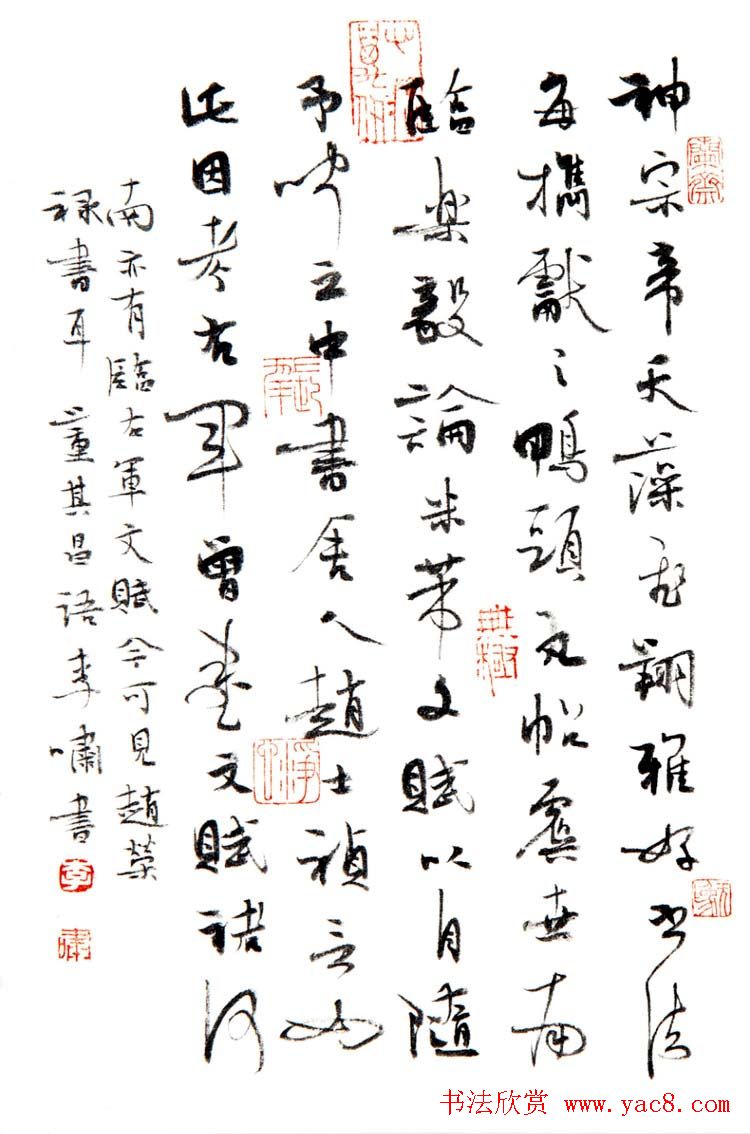 神宗帝天藻飛翔雅好書法
每攜獻之鴨頭丸帖虞世南
臨樂毅論米芾文賦以自隨
予聞之中書舍人趙士禎言如
此因考右軍曾書文賦褚河
南亦有臨右軍文賦今可見趙榮
祿書耳 董其昌語李嘯書
李
嘯
無極
书法欣赏 www.yac8.com